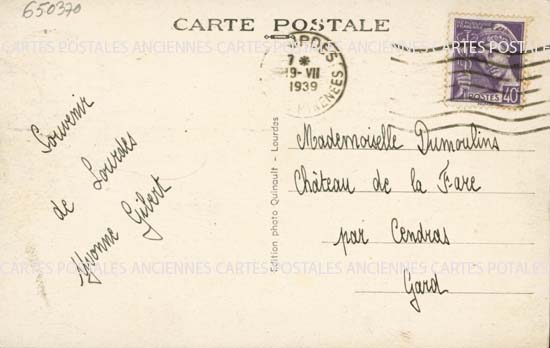 650370
CARTE POSTALE
7 *
19-VII
1939
PYRÉNÉES
POSTES 40
Souvenir
de Lourdes
Yvonne Gibert
Edition photo Quinault - Lourdes
Mademoiselle Dumoulins
Château de la Fare
par Cendras
Gard
CARTES POSTALES ANCIENNES CARTES POSTALES ANCIENNES CARTES POSTALES
CARTES POSTALES ANCIENNES CARTES POSTALES ANCIENNES CARTES POTALES